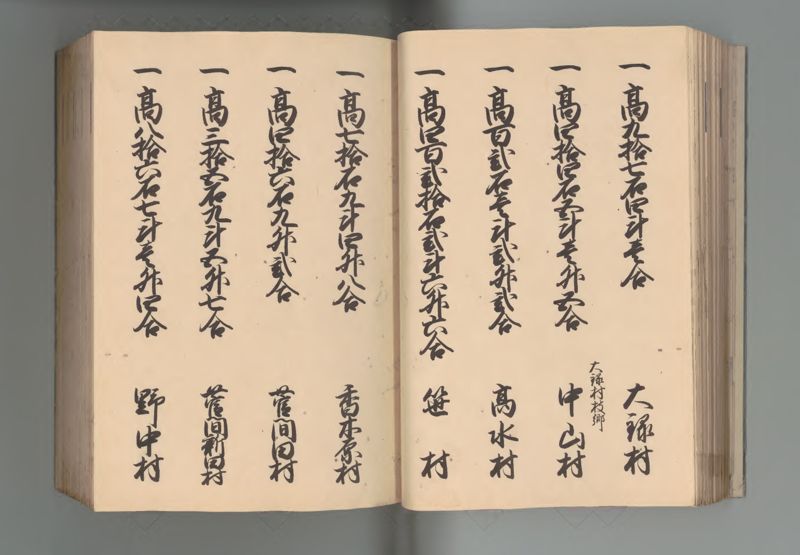 一 高九拾七石四斗壱合 大禄村
大禄村枝郷
一 高四拾四石五斗壱升五合 中山村
一 高百弐石壱斗弐升弐合 高水村
一 高四百弐拾石弐斗六升六合 笹村
一 高七拾石九斗四升八合 香木原村
一 高四拾六石九升弐合 菅間田村
一 高三拾五石九斗五升七合 菅間新田村
一 高八拾六石七斗壱升四合 野中村